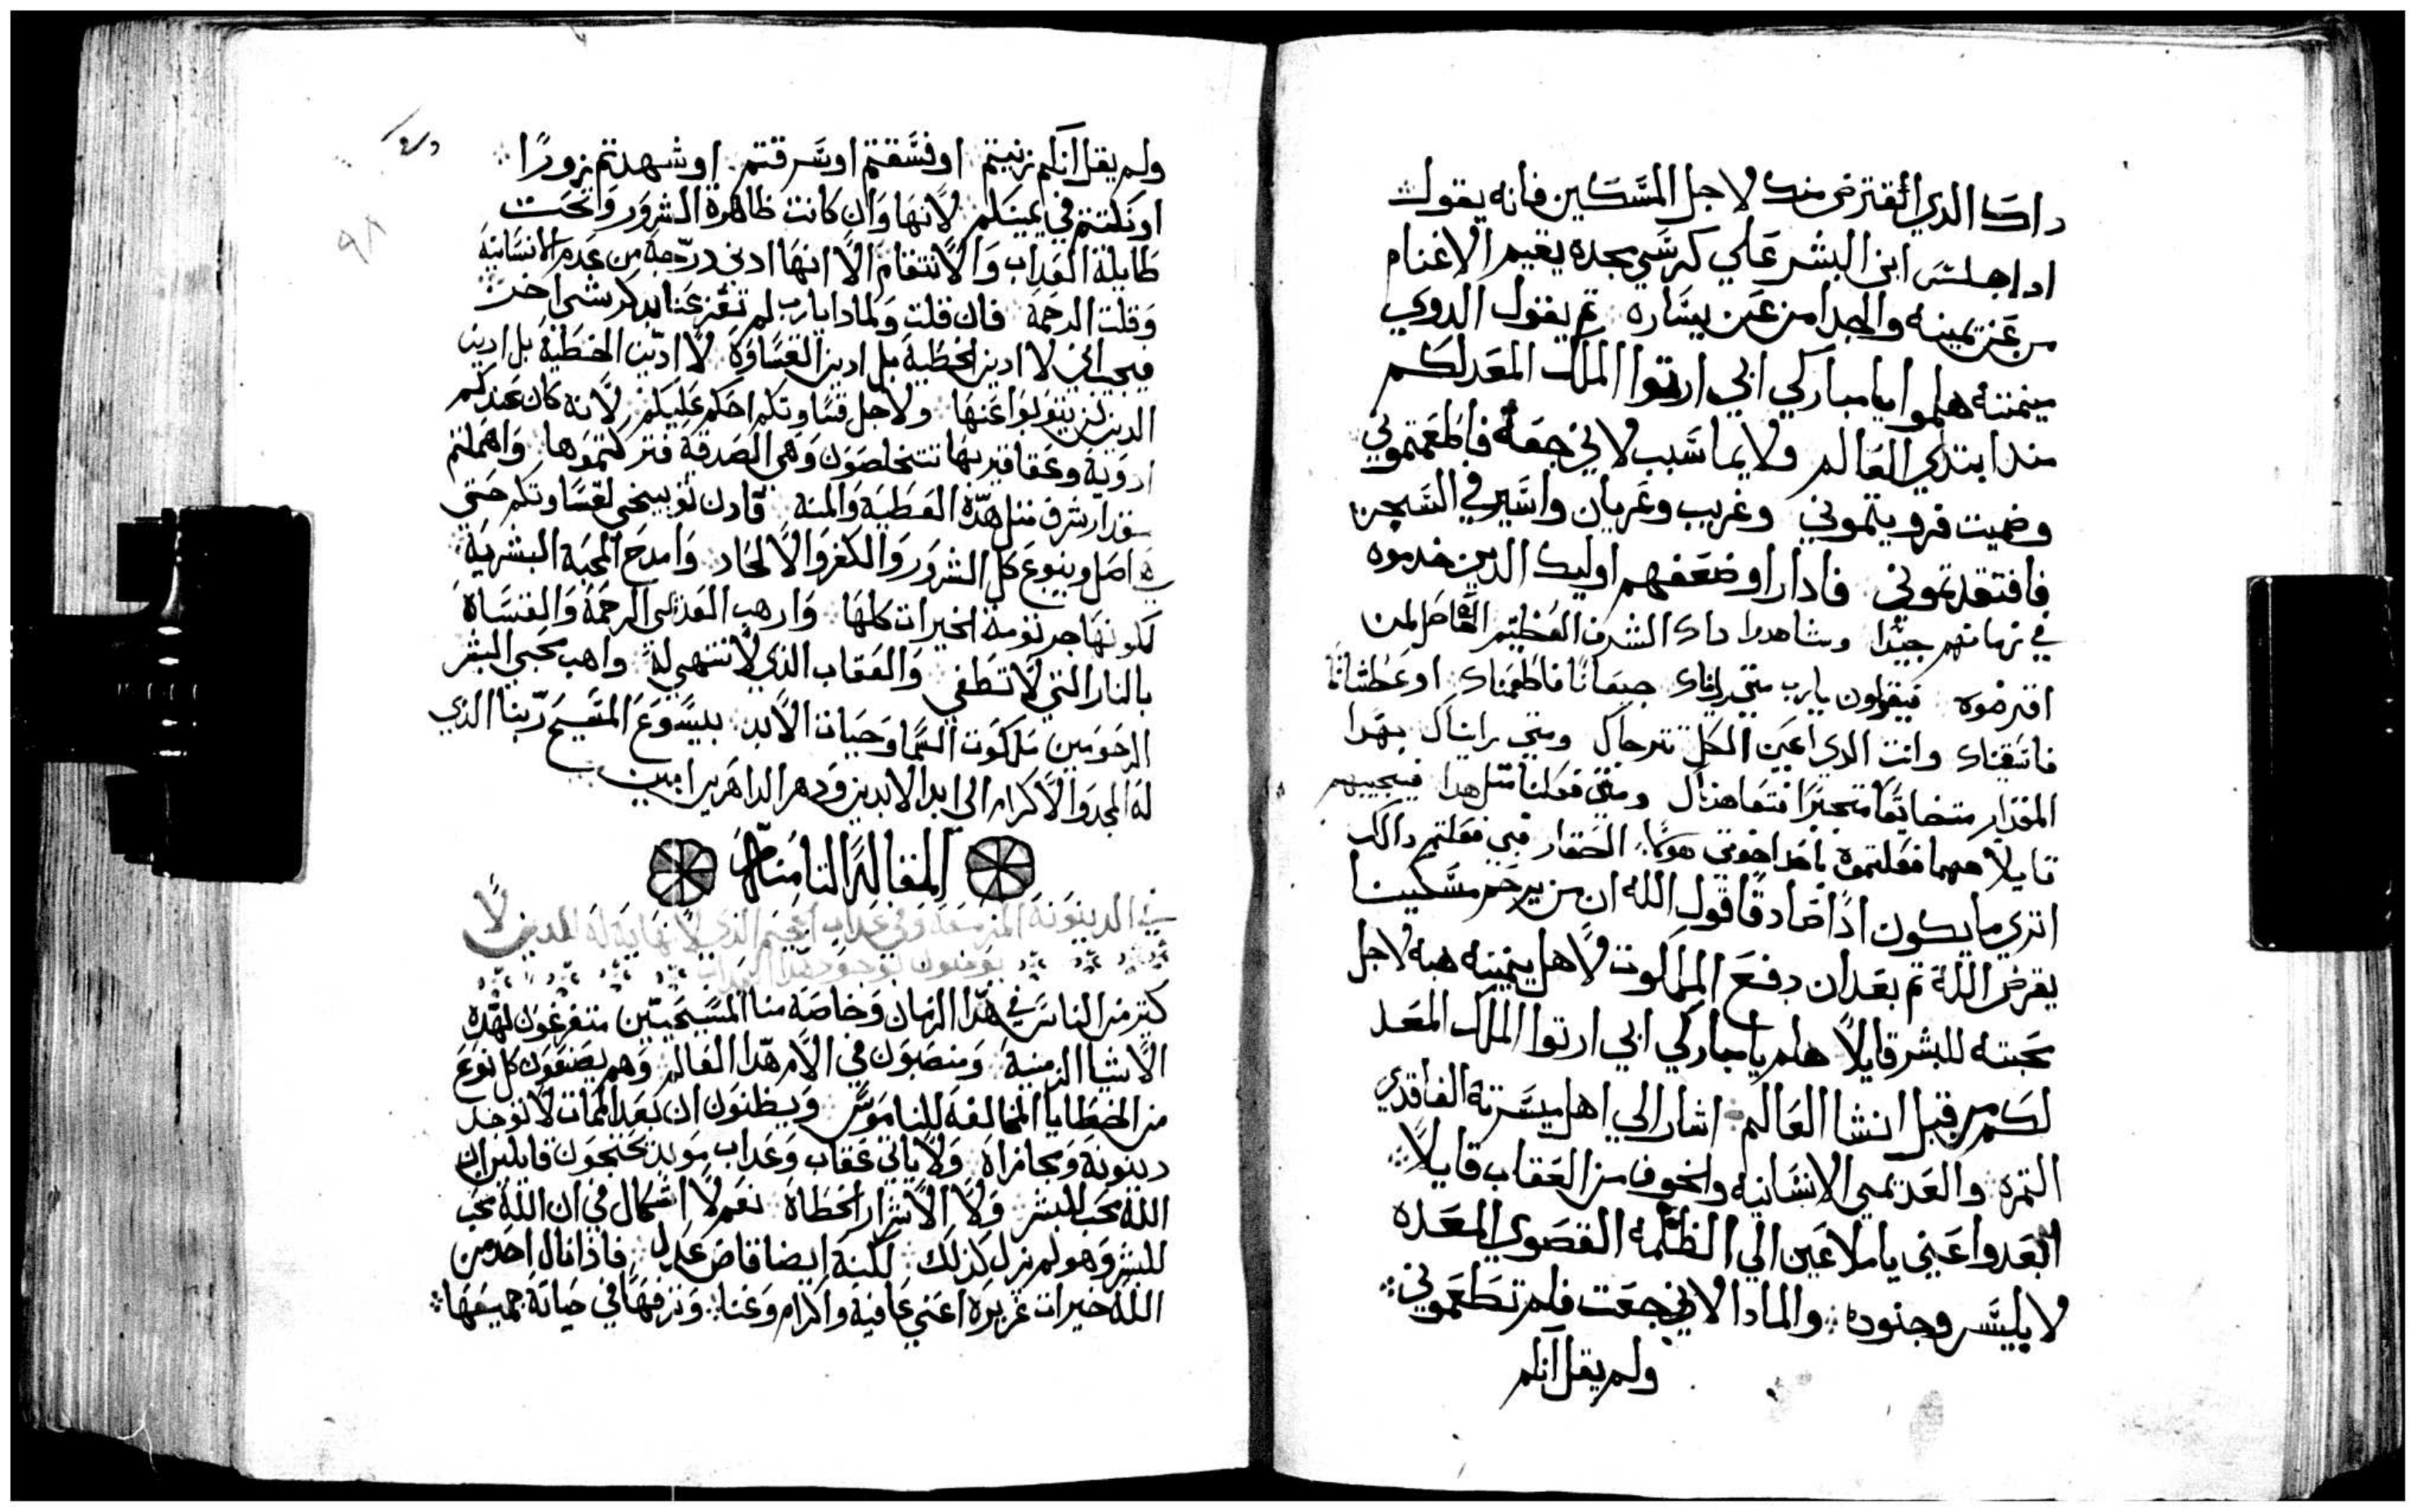 داك الذي اقترض منك لاجل المسكين فانه يقول
اداجلس ابن البشر علي كرسي مجده يقيم الاغنام
من عن يمينه والجدا من عن يساره تم يقول الدوي
ميمنته هلموا يا مباركي ابي ارتوا الملك المعد لكم
مند ابتدي العالم ولايما سبب لاني جعت فاطعمتموني
وضميت فرويتموني وغريب وعريان واسير في السجن
فافتقدتموني فادا راوضعفهم اوليك الدين خدموه
في زمانهم جيدا وشاهدوا داك الشرف العظيم الفاضل لمن
اقترضوه فيقولون يارب متي رايناك جيعانا فاطعمناك او عطشانا
فاسقيناك وانت الدي اعين الكل تترجاك ومتي رايناك بهدا
المقدار متضايقا متحيرا فتعاهدناك ومتي فعلنا متل هدا فيجيبهم
قايلا مهما فعلتموه باحد اخوتي هولاء الحقار فبي فعلتم داك
اتري ما يكون ادا صادقا قول الله ان من يرحم مسكينا
يقرض الله تم بعد ان دفع الملكوت لاهل يمينه هبه لاجل
محبته للبشر قايلا هلم يا مباركي ابي ارتوا الملك المعد
لكم من قبل انشا العالم اشار الي اهل ميسرته الفاقدي
التمره والعديمي الانسانيه والخوف من العقاب قايلا
ابعدوا عني ياملاعين الي الظلمه القصوي المعده
لابليس وجنوده والمادا لاني جعت فلم تطعموني
ولم يقل انكم
ولم يقل انكم زنيتم او فسقتم او سرقتم او شهدتم بزورا
او نكتتم في يمينكم لانها وان كانت ظاهرة الشرور وتحت
طايلة العداب والانتقام الا انها ادني درجة من عدم الانسانية
وقلت الرحمة فان قلت ولمادا يارب لم تعز عنا بدكر شي اخر
فيجب اني لا ادين الخطية بل ادين القساوة لا ادين الخطية بل ادين
الدين لم يتوبوا عنها ولاجل قساوتكم احكم عليكم لانه كان عندكم
ادوية وعقاقير بها تتخلصون وهي الصدقة فتركتموها واهملتم
مقدار شرف متل هده العطية والمنة فادن توبيخي لقساوتكم حتي
هي اصل وينبوع كل الشرور والكفر والالحاد وامدح المحبة البشرية
لكونها جرتومة الخيرات كلها وارهب العديمي الرحمة والقساة
بالنار التي لا تطفي والعقاب الذي لا تنتهي له واهب محبي البشر
الرحومين ملكوت السما وحيات الابد بيسوع المسيح ربنا الذي
له المجد والاكرام الي ابد الابدين ودهر الداهرين امين
المقالة التامنة
في الدينونة المزمعة وفي عداب الجحيم الذي لا نهاية له للدين لا
يومنون بوجود هدا العداب
كتير من الناس في هدا الزمان وخاصة منا المسيحيين متفرغون لهده
الاشيا الزمنية ومنصبون في الام هدا العالم وهم يصنعون كل نوع
من الخطايا المخالفة للناموس ويظنون ان بعد الممات لا توجد
دينونة ومجازاة ولا ياتي عقاب وعداب موبد محتجون قايلين ان
الله محب للبشر ولا الاشرار الخطاة نعم لا اشكال في ان الله محب
للبشر وهو لم يزل كذلك لكنه ايضا قاض عدل فاذا نال احد من
الله خيرات غزيره اعني عافية واكرام وغنا وتنزفها في حياته جميعها